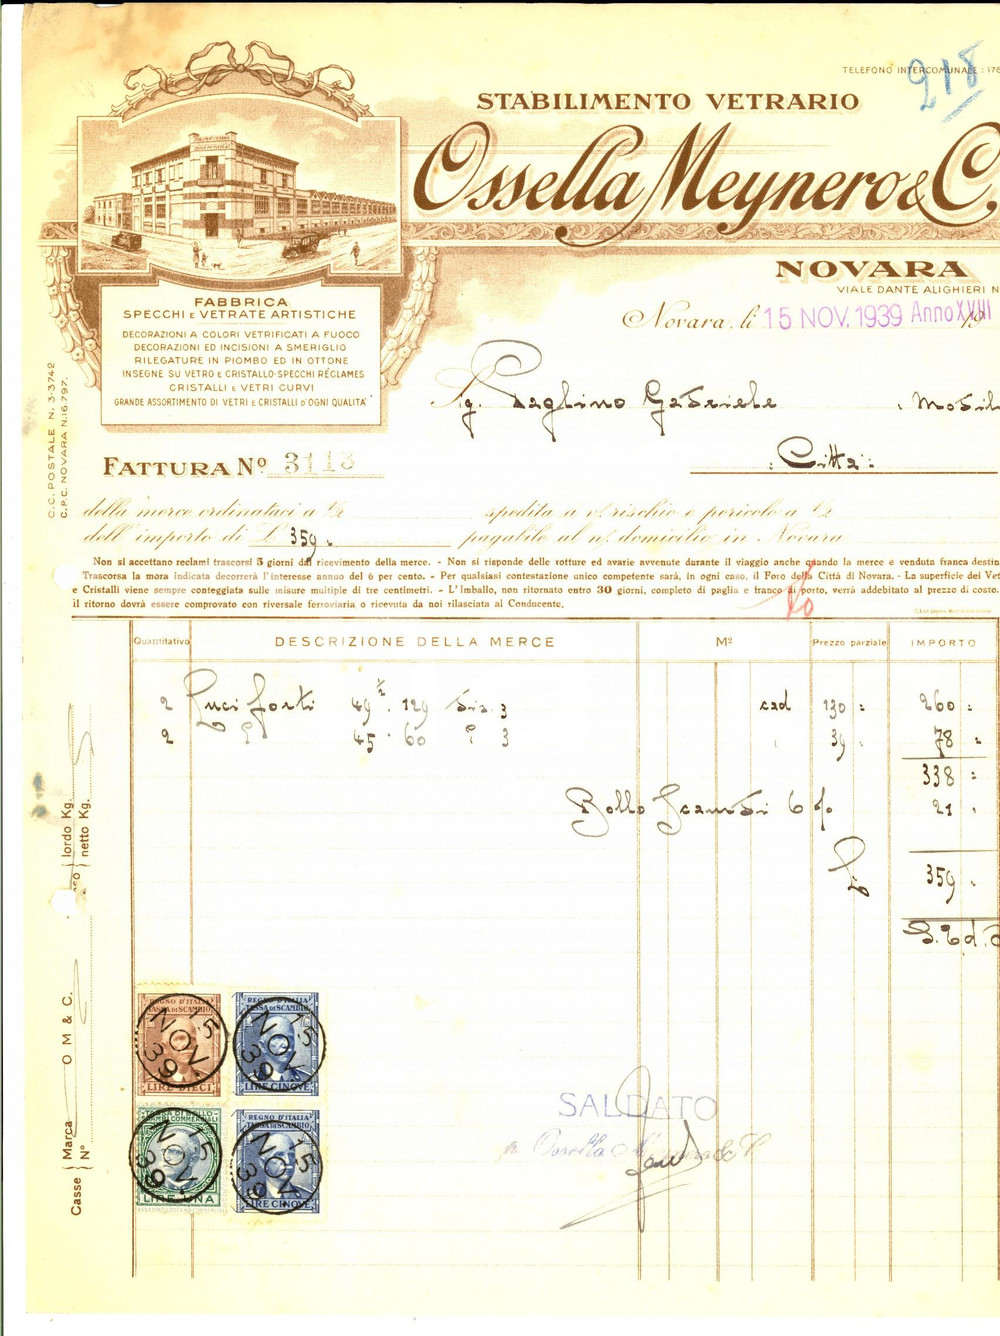 218
TELEFONO INTERCOMUNALE : 176
STABILIMENTO VETRARIO
Ossella Meynero & C.
NOVARA
VIALE DANTE ALIGHIERI N
Novara, li 15 NOV. 1939 Anno XVIII 19
FABBRICA
SPECCHI E VETRATE ARTISTICHE
DECORAZIONI A COLORI VETRIFICATI A FUOCO
DECORAZIONI ED INCISIONI A SMERIGLIO
RILEGATURE IN PIOMBO ED IN OTTONE
INSEGNE SU VETRO E CRISTALLO-SPECCHI RÉCLAMES
CRISTALLI E VETRI CURVI
GRANDE ASSORTIMENTO DI VETRI E CRISTALLI D'OGNI QUALITA'
C.C. POSTALE N. 3-3742
C.P.C. NOVARA N. 16.797.
Sig. Paglino Gabriele , Mobil
: Città :
FATTURA Nº 3113
della merce ordinataci a ½ spedita a n/ rischio e pericolo a ½
dell'importo di L. 359. pagabile al n/ domicilio in Novara
Non si accettano reclami trascorsi 5 giorni dal ricevimento della merce. - Non si risponde delle rotture ed avarie avvenute durante il viaggio anche quando la merce e venduta franca destin
Trascorsa la mora indicata decorrerà l'interesse annuo del 6 per cento. - Per qualsiasi contestazione unico competente sarà, in ogni caso, il Foro della Città di Novara. - La superficie dei Vet
e Cristalli viene sempre conteggiata sulle misure multiple di tre centimetri. - L'Imballo, non ritornato entro 30 giorni, completo di paglia e franco di porto, verrà addebitato al prezzo di costo.
il ritorno dovrà essere comprovato con riversale ferroviaria o ricevuta da noi rilasciata al Conducente.
Quantitativo DESCRIZIONE DELLA MERCE M² Prezzo parziale IMPORTO
2 Luci forti 49 ½ . 129 3 cad 130 : 260 :
2 45 . 60 3 39 . 78 :
338 :
Bollo Scambi 6 % 21 .
£ 359 .
Casse Marca O M & C.
Nº
peso lordo Kg.
netto Kg.
REGNO D'ITALIA
TASSA DI SCAMBIO
LIRE DIECI
15 NOV 39
REGNO D'ITALIA
TASSA DI SCAMBIO
LIRE CINQUE
15 NOV 39
LIRE UNA
15 NOV 39
REGNO D'ITALIA
TASSA DI SCAMBIO
LIRE CINQUE
15 NOV 39
SALDATO
Ossella Meynero & C.